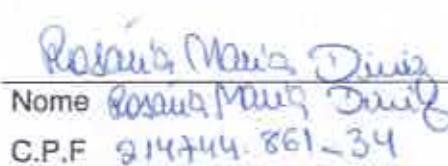 Rosaria Maria Diniz
Nome Rosaria Maria Diniz
C.P.F 214744.861-34